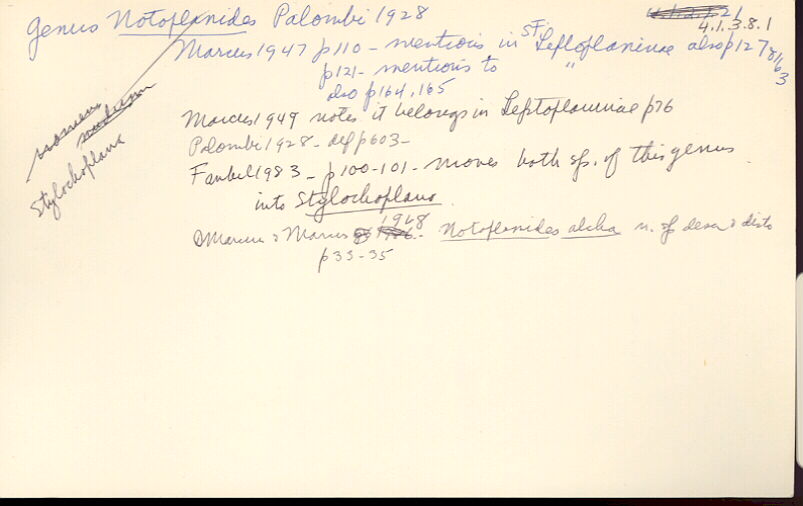 Genus Notoplanides Palombi 1928
4.1.3.8.1
Marcus 1947 p110 - mentions in SF. Leptoplaninae also p127, 163
p121 - mentions to "
also p164, 165
nomen nudum
Stylochoplana
Marcus 1949 notes it belongs in Leptoplaninae p76
Palombi 1928 - def p603 -
Faubel 1983 - p100-101 - moves both sp. of this genus
into Stylochoplana.
Marcus & Marcus 1968 - Notoplanides alcha n. sp descr & dist
p33-35